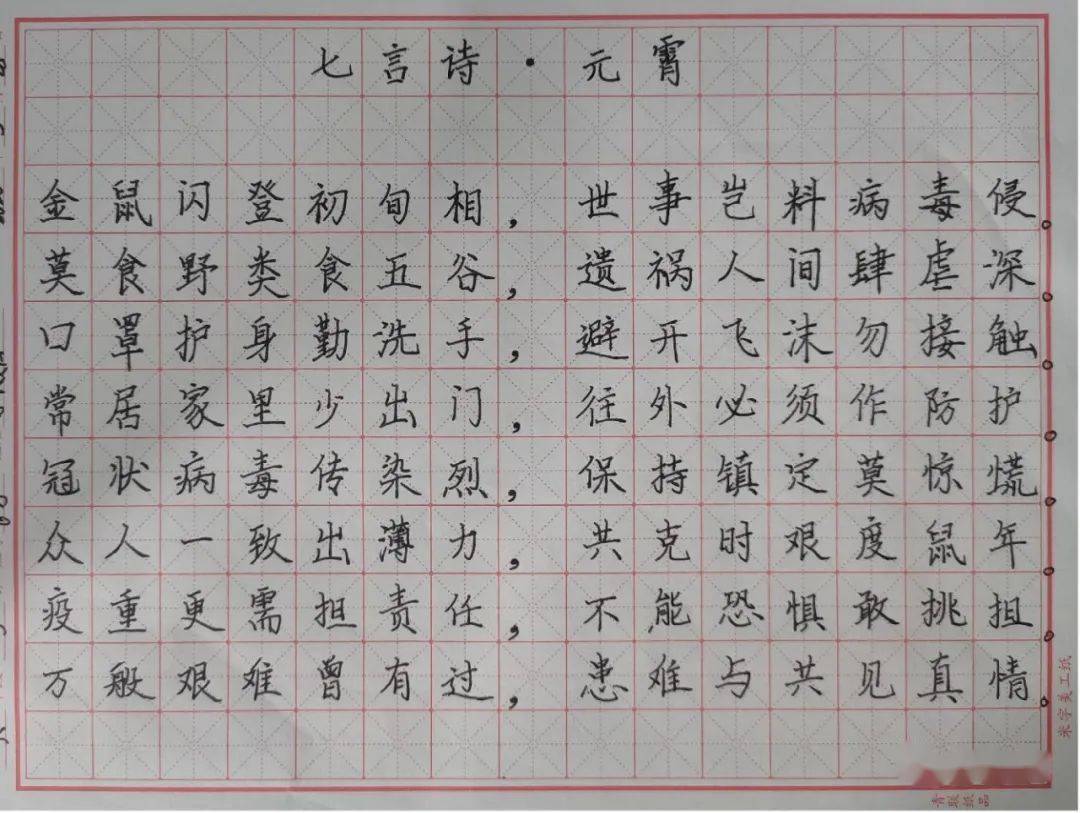 七言诗·元霄
金鼠闪登初旬相，世事岂料病毒侵。
莫食野类食五谷，遗祸人间肆虐深。
口罩护身勤洗手，避开飞沫勿接触。
常居家里少出门，往外必须作防护。
冠状病毒传染烈，保持镇定莫惊慌。
众人一致出薄力，共克时艰度鼠年。
疫重更需担责任，不能恐惧敢挑担。
万般艰难曾有过，患难与共见真情。
米字美工纸
青联纸品